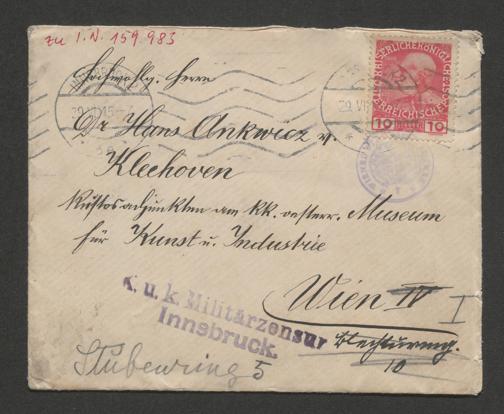 zu I. N. 159 983
Hochwohlg. Herrn
Dr Hans Ankwicz v.
Kleehoven
Kustosadjunkten am kk. oesterr. Museum
für Kunst u. Industrie
Wien IV I
10
Stubenring 5
K. u. k. Militärzensur
Innsbruck.
KAISERLICHE KÖNIGLICHE
ÖSTERREICHISCHE
10 HELLER 10